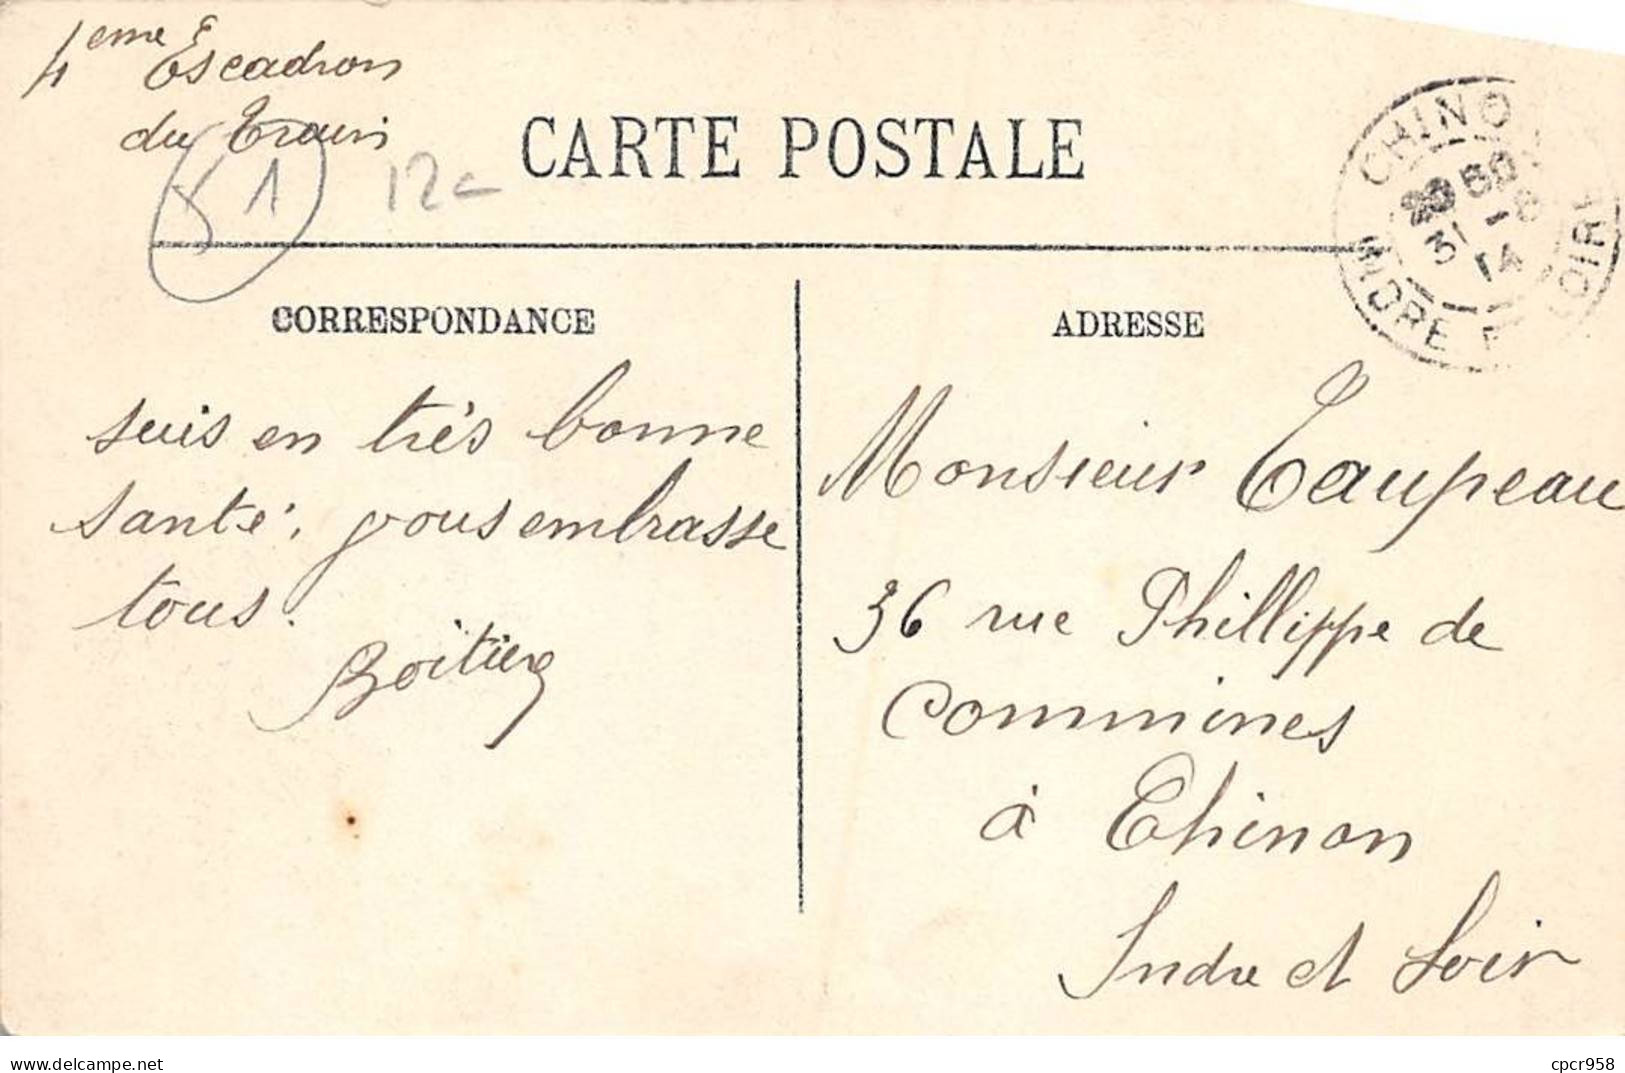 4eme Escadron
du Train
51
12
CARTE POSTALE
CHINO
31 - 8
14
INDRE ET LOIRE
CORRESPONDANCE
ADRESSE
suis en très bonne
santé, vous embrasse
tous.
Boitier
Monsieur Taupeau
36 rue Phillippe de
Commines
à Chinon
Indre et Loir
delcampe.net
cpcr958